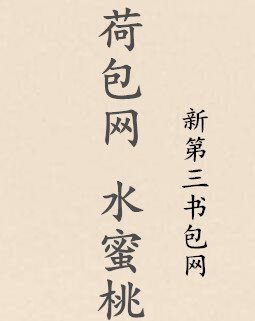 荷包网 水蜜桃
新第三书包网